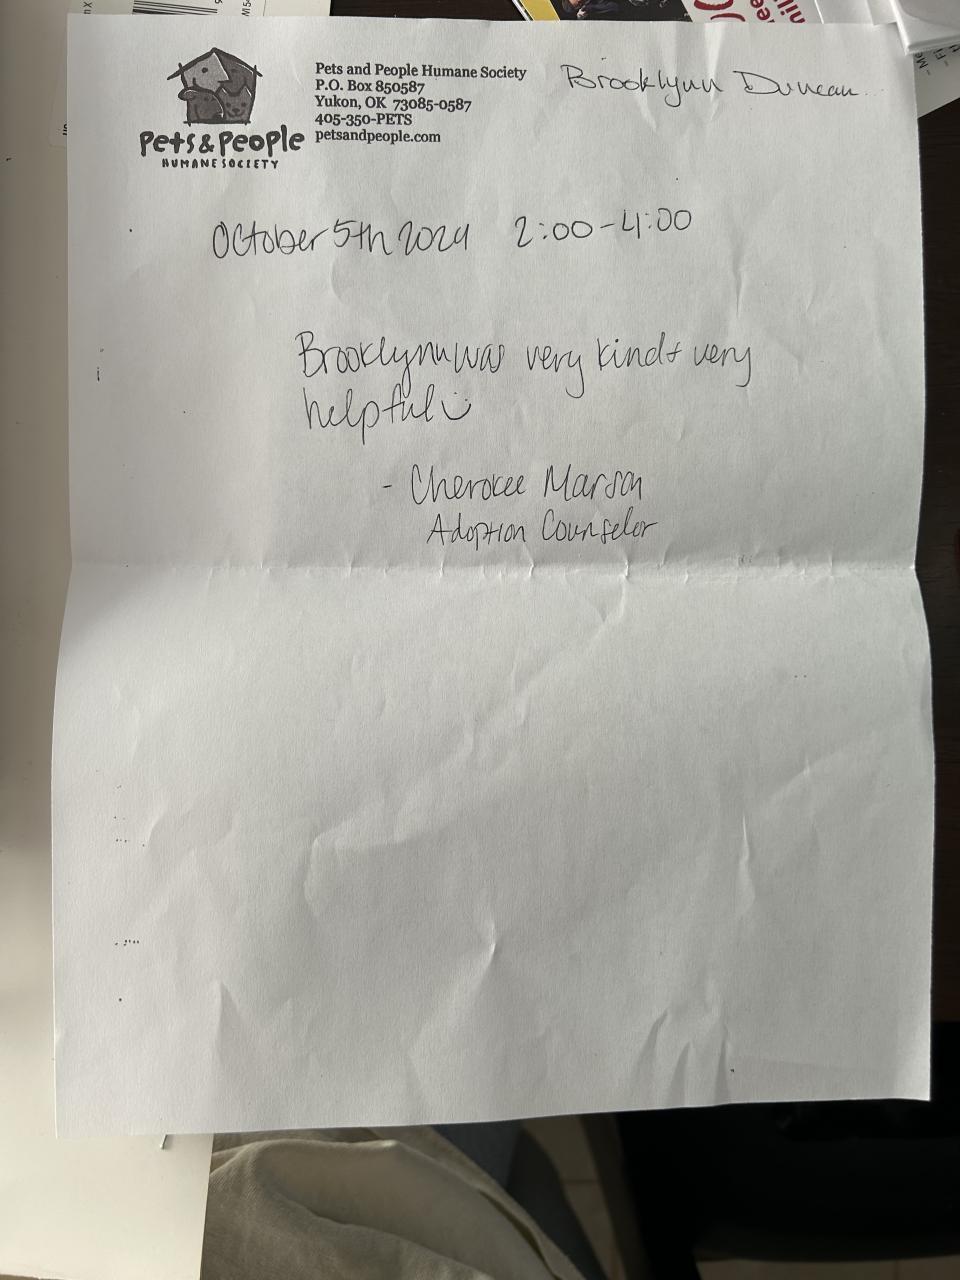 Pets & People
HUMANE SOCIETY
Pets and People Humane Society
P.O. Box 850587
Yukon, OK 73085-0587
405-350-PETS
petsandpeople.com
Brooklynn Duncan
October 5th 2024 2:00-4:00
Brooklynn was very kind + very
helpful :)
- Cherokee Marson
Adoption Counselor